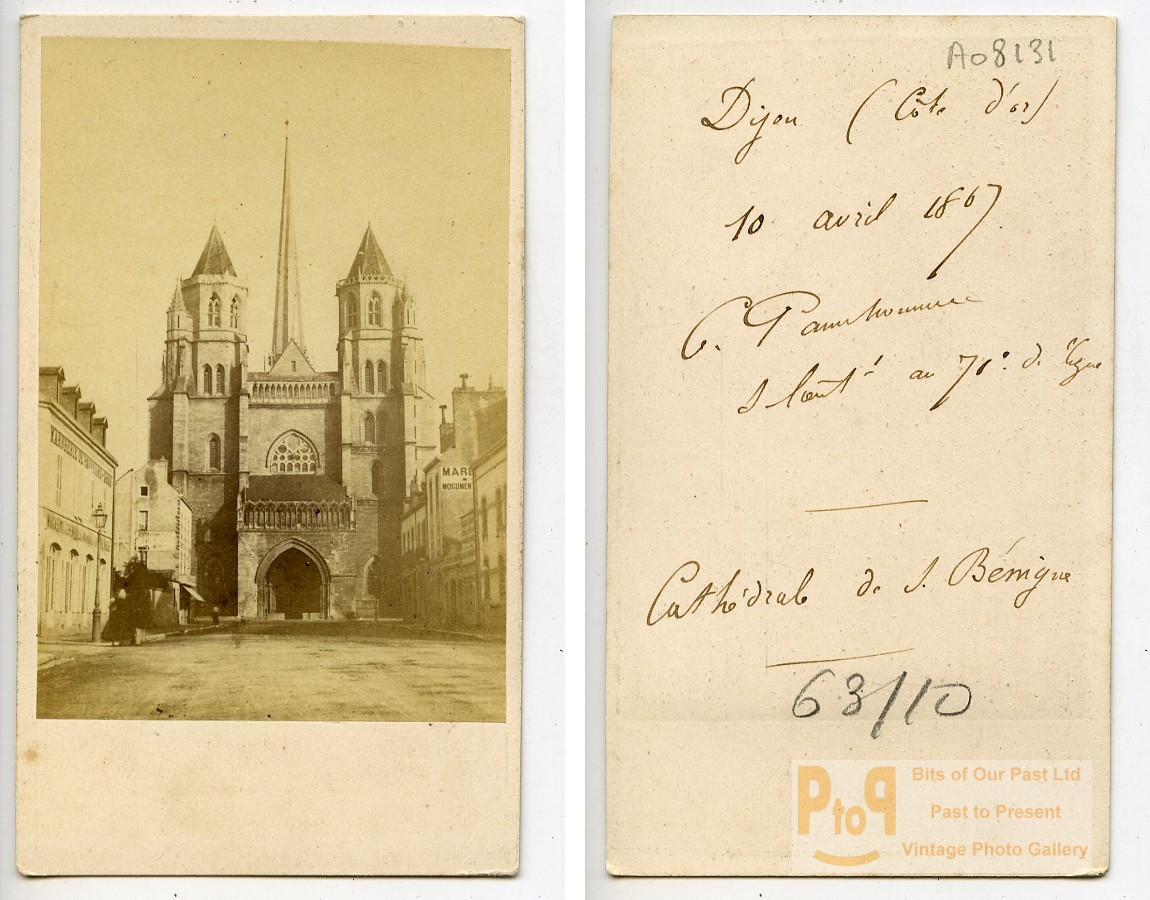 MAR
MONUMEN
A08131
Dijon (Côte d'or)
10 avril 1867
S lieutt au 71e de ligne
Cathédrale de S. Bénigne
63/10
PtoP
Bits of Our Past Ltd
Past to Present
Vintage Photo Gallery